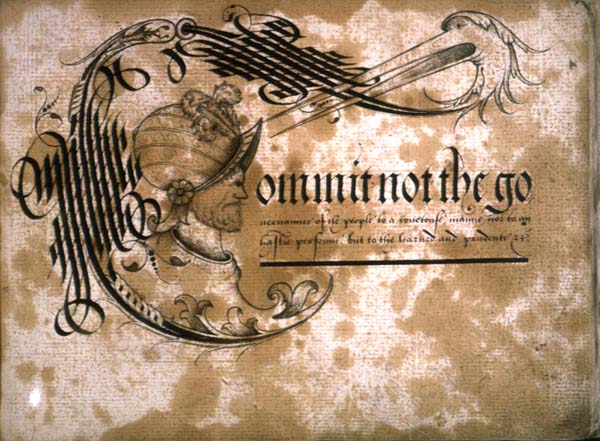 Commit not the go
uernaunce of the people to a couetouse manne nor to an
hastie persoune, but to the learned and prudente, &c